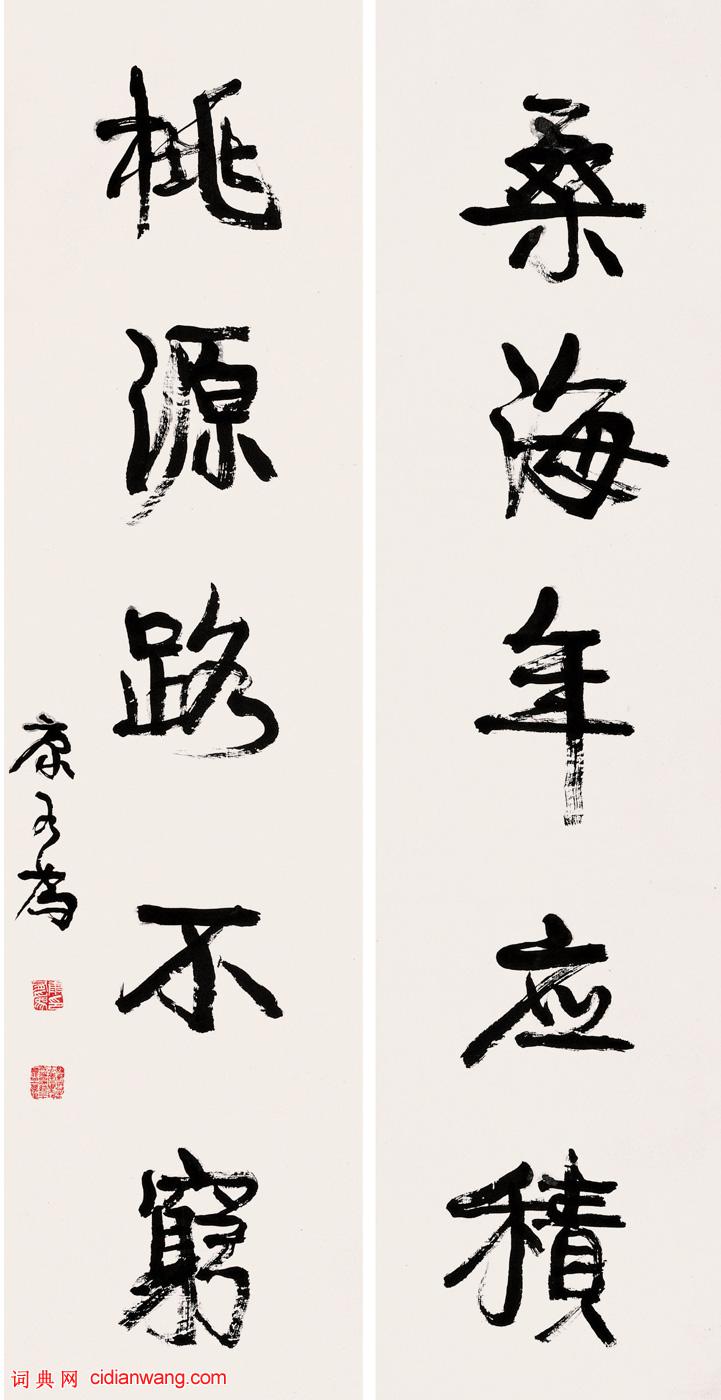 桑海年应積
桃源路不窮
康有為
词典网 cidianwang.com